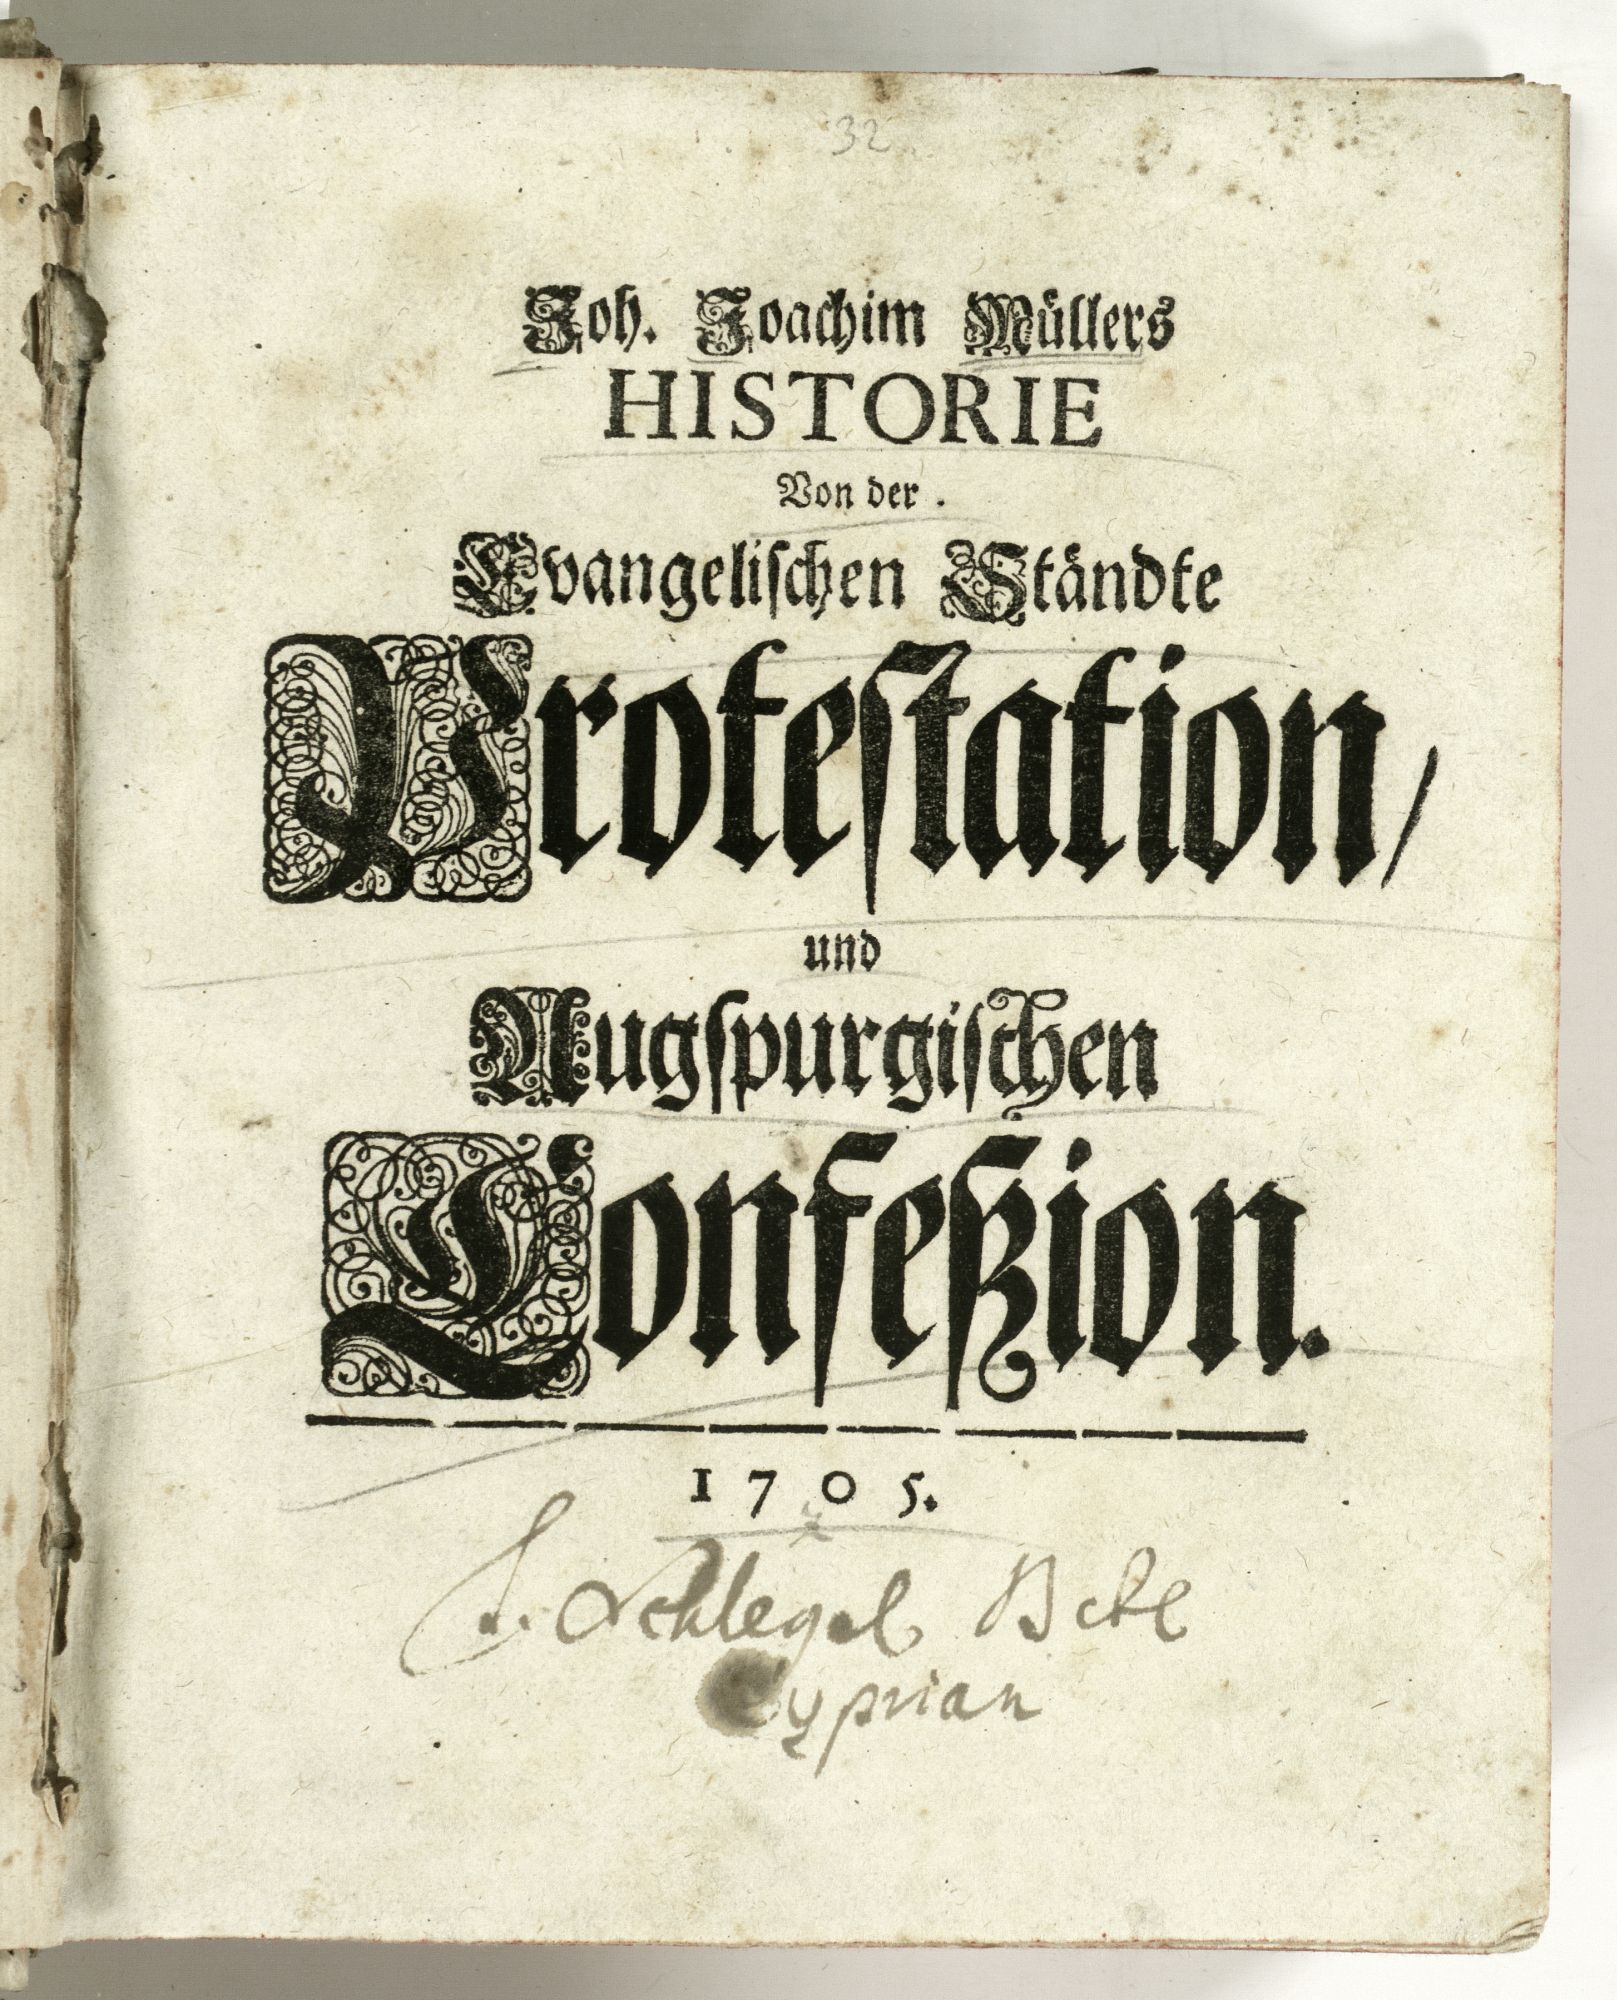 32
Joh. Joachim Müllers
HISTORIE
Von der
Evangelischen Ständte
Protestation/
und
Augspurgischen
Confeßion.
1705.
Schlegel
Cyprian